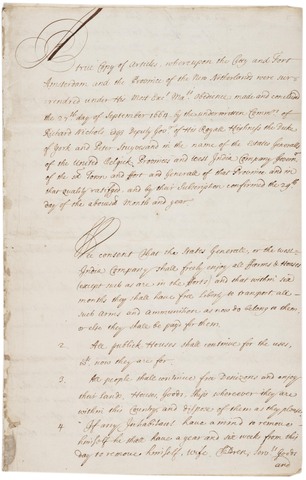 A
true Copy of Articles, whereupon the City and Fort
Amsterdam and the Province of the New Netherlands were sur-
rendred under his Maties obedience, made and concluded
the 27th day of September 1664 by the underwritten Comrs of
Richard Nicholls Esqr Deputy Govr of his Royall Highness the Duke
of York and Peter Stuyvesand in the name of the States Generall
of the United Belgick Provinces and West India Company Govr
of the sd Town and fort and Generale of that Province and in
that quality ratifyed and by their Subscription confirmed the 29th
day of the abovesd Month and year
We consent That the States Generale, or the west
India Company shall freely enjoy all ffarms & Houses
(except such as are in the fforts) and that within six
months they shall have free liberty to transport all
such Arms and Ammunition, as now do belong to them,
or else they shall be paid for them
2. All publick Houses shall continue for the uses,
wch now they are for.
3. All people shall continue free Denizons and enjoy
their Lands, Houses, Goods, Ships wheresoever they are
within this Country and dispose of them as they please
4. If any Inhabitant have a mind to remove
himself he shall have a year and six weeks from this
day to remove himself, wife, Children, Servts, Goods
and